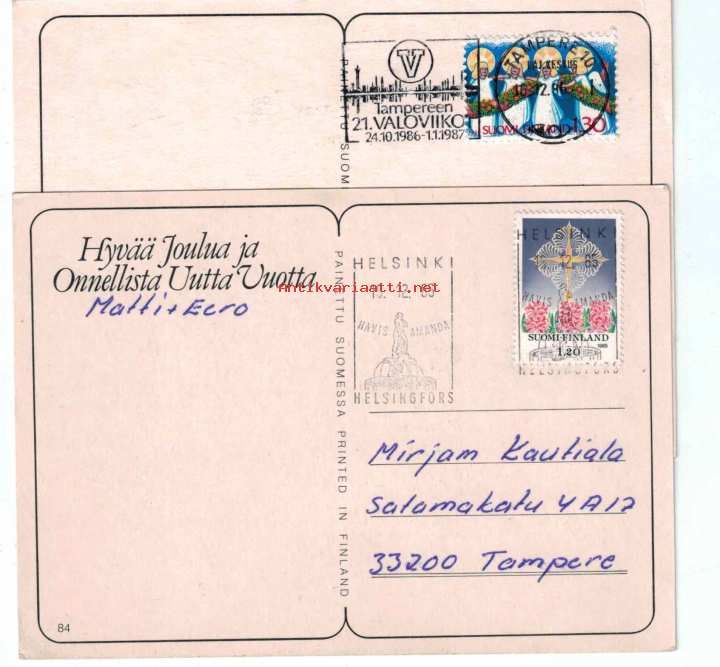 TAMPERE 10
Tampereen
21. VALOVIIKO
24.10.1986-1.1.1987
SUOMI-FINLAND 1.30
PAINETTU SUOM
Hyvää Joulua ja
Onnellista Uutta Vuotta
Antikvariaatti.net
Matti+Eero
PAINATTU SUOMESSA PRINTED IN FINLAND
HELSINKI
12.85
HAVIS AMANDA
HELSINGFORS
HELSINKI
HAVIS AMANDA
SUOMI-FINLAND
1985
1.20
HELSINGFORS
Mirjam Kautiala
Salamakatu 4 A 17
33200 Tampere
84